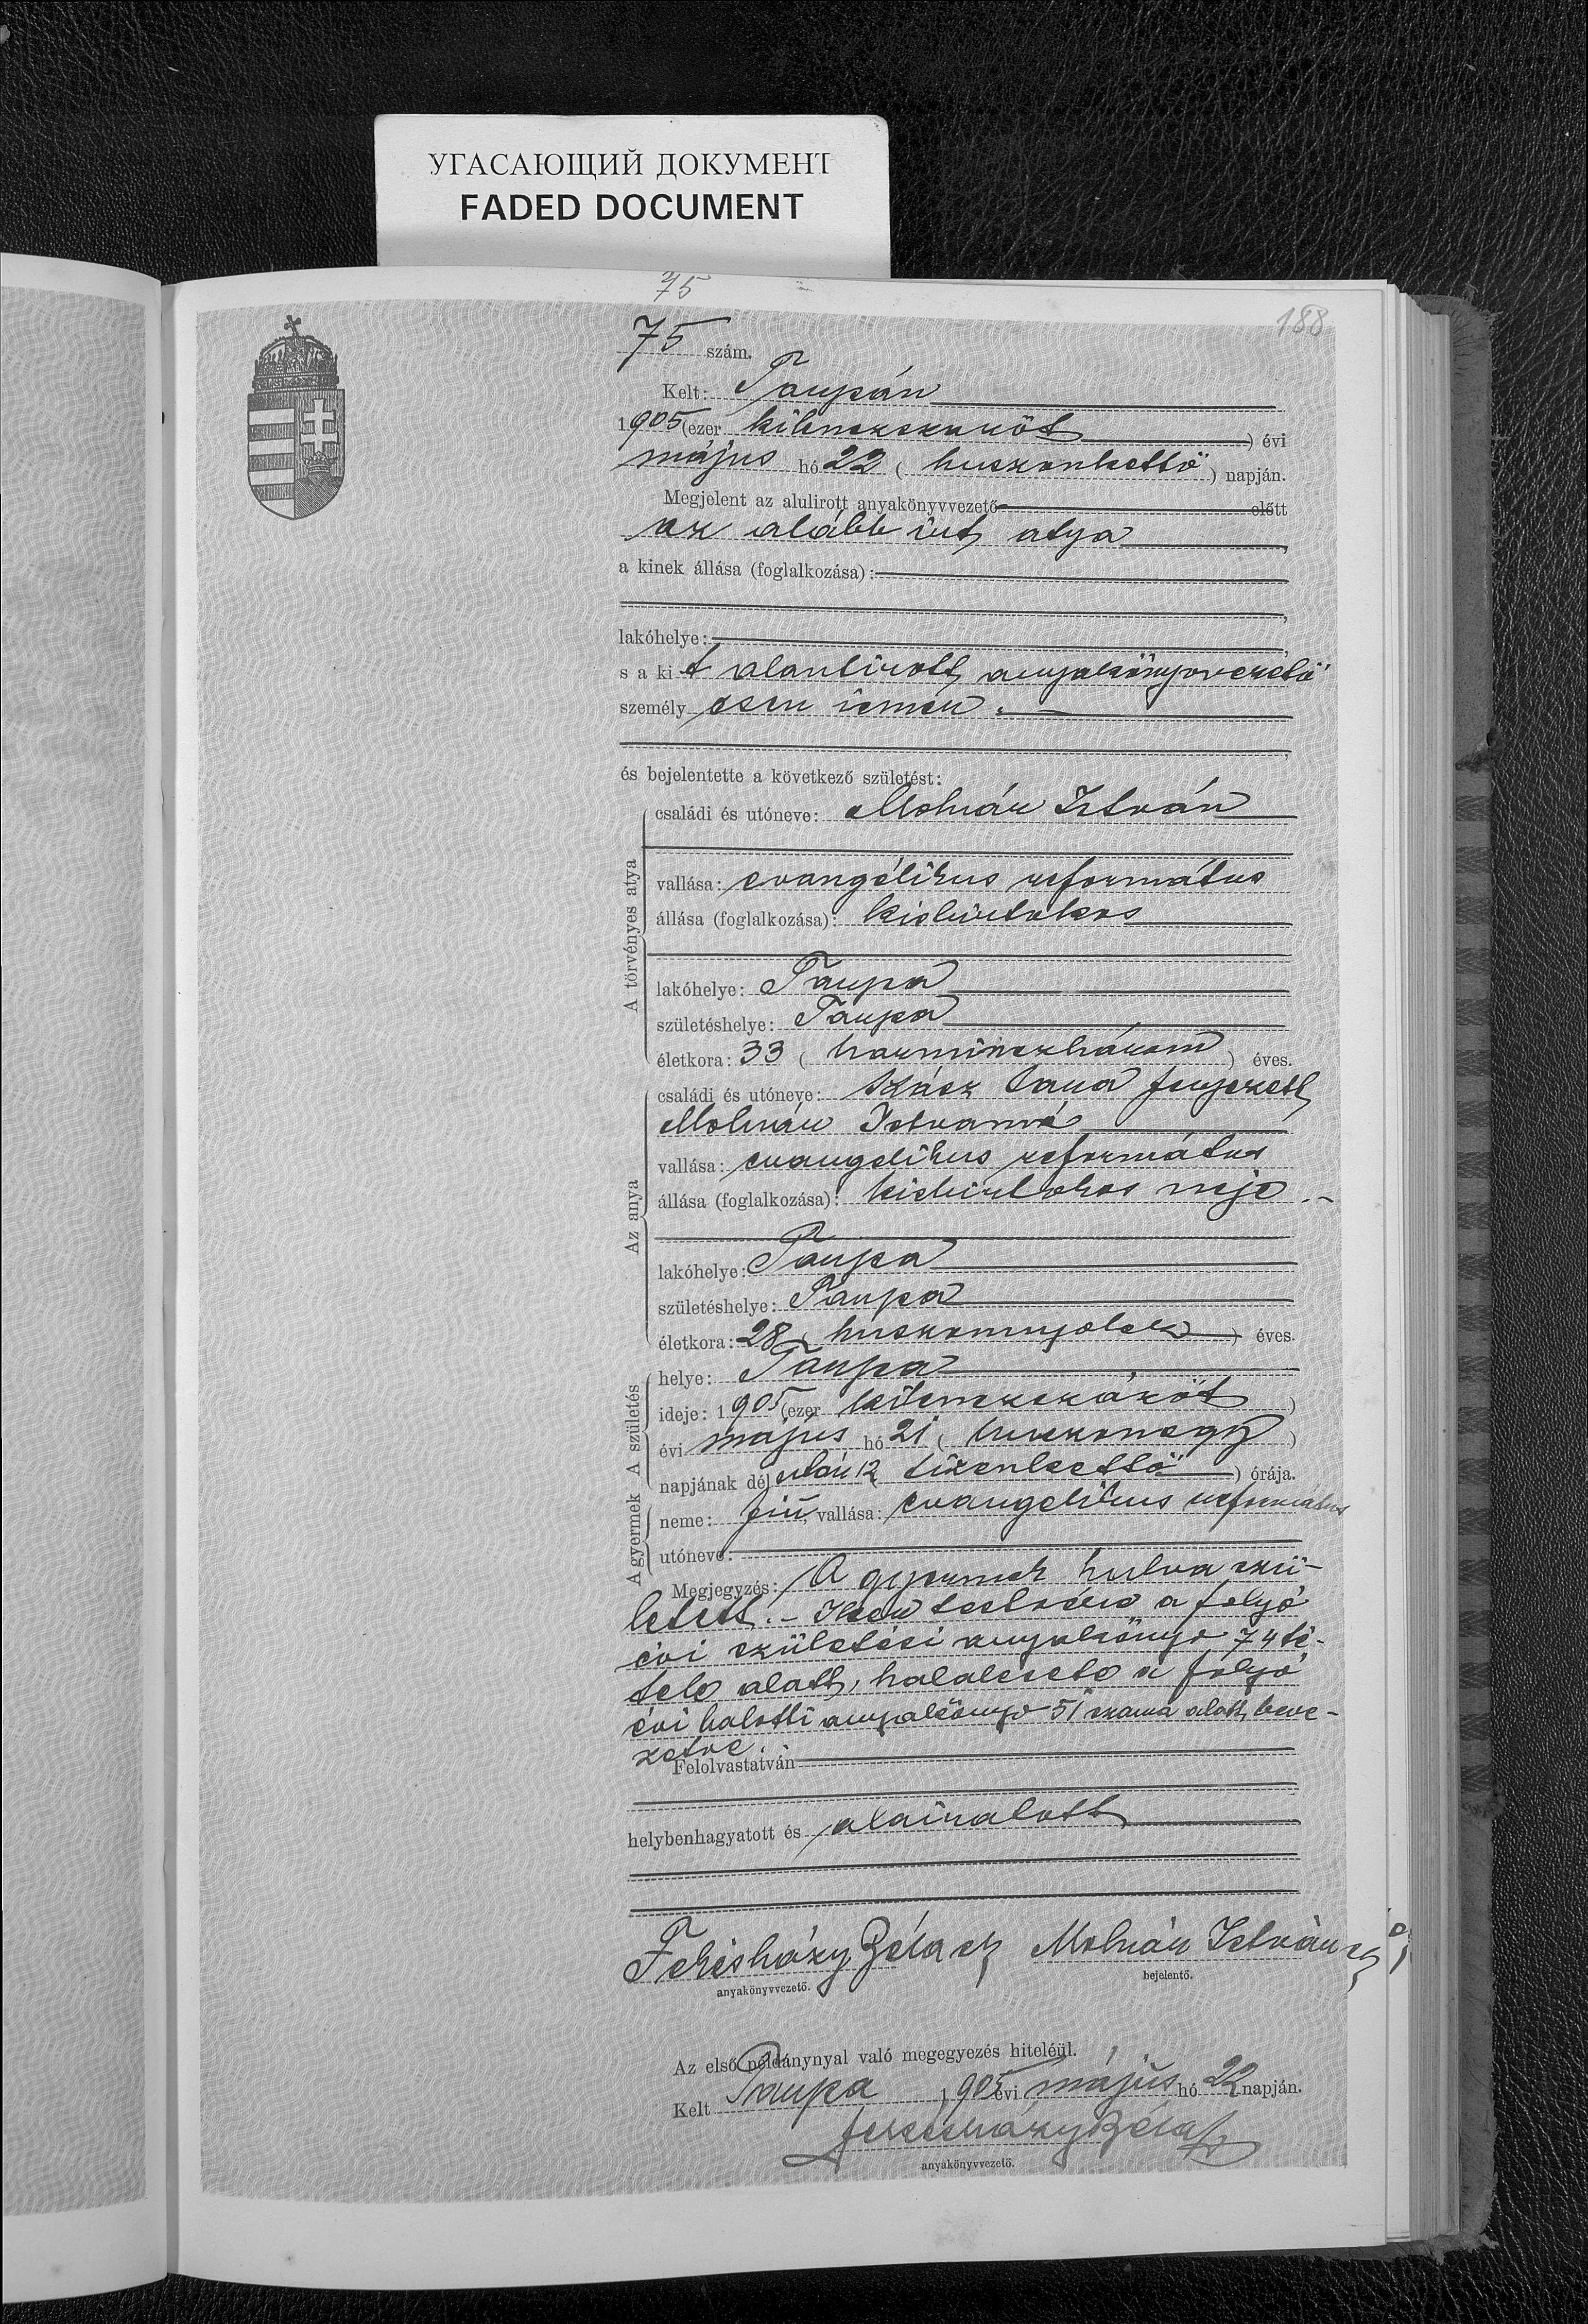 УГАСАЮЩИЙ ДОКУМЕНТ
FADED DOCUMENT
75
188
75 szám.
Kelt: Taupán
1905 (ezer kilenczszázöt) évi
május hó 22 (huszonkettő) napján.
Megjelent az alulirott anyakönyvvezető előtt
az alább írt atya,
a kinek állása (foglalkozása):
lakóhelye:
s a kit alantirott anyakönyvvezető
személyesen ismer.
és bejelentette a következő születést:
A törvényes atya
családi és utóneve: Molnár István
vallása: evangélikus református
állása (foglalkozása): kisbirtokos
lakóhelye: Taupa
születéshelye: Taupa
életkora: 33 (harminczhárom) éves.
Az anya
családi és utóneve:
Molnár Istvánné
vallása: evangelikus református
állása (foglalkozása): kisbirtokos neje.-
lakóhelye: Taupa
születéshelye: Taupa
életkora: 28 (huszonnyolcz) éves.
A gyermek A születés
helye: Taupa
ideje: 1905 (ezer kilenczszázöt)
évi május hó 21 (huszonegy)
napjának délután 12 (tizenkettő) órája.
neme: fiú, vallása: evangelikus református
utóneve:
Megjegyzés: A gyermek halva szü-
letett.- Iker testvére a folyó
évi születési anyakönyv 74 té-
tele alatt, halálesete a folyó
évi halotti anyakönyv 51 száma alatt beve-
zetve.
Felolvastatván
helybenhagyatott és aláiratott
Fehérházy Béla sk Molnár István sk
anyakönyvvezető. bejelentő.
Az első példánynyal való megegyezés hiteléül.
Kelt Taupa 1905 évi május hó 22 napján.
Fehérházy Béla
anyakönyvvezető.